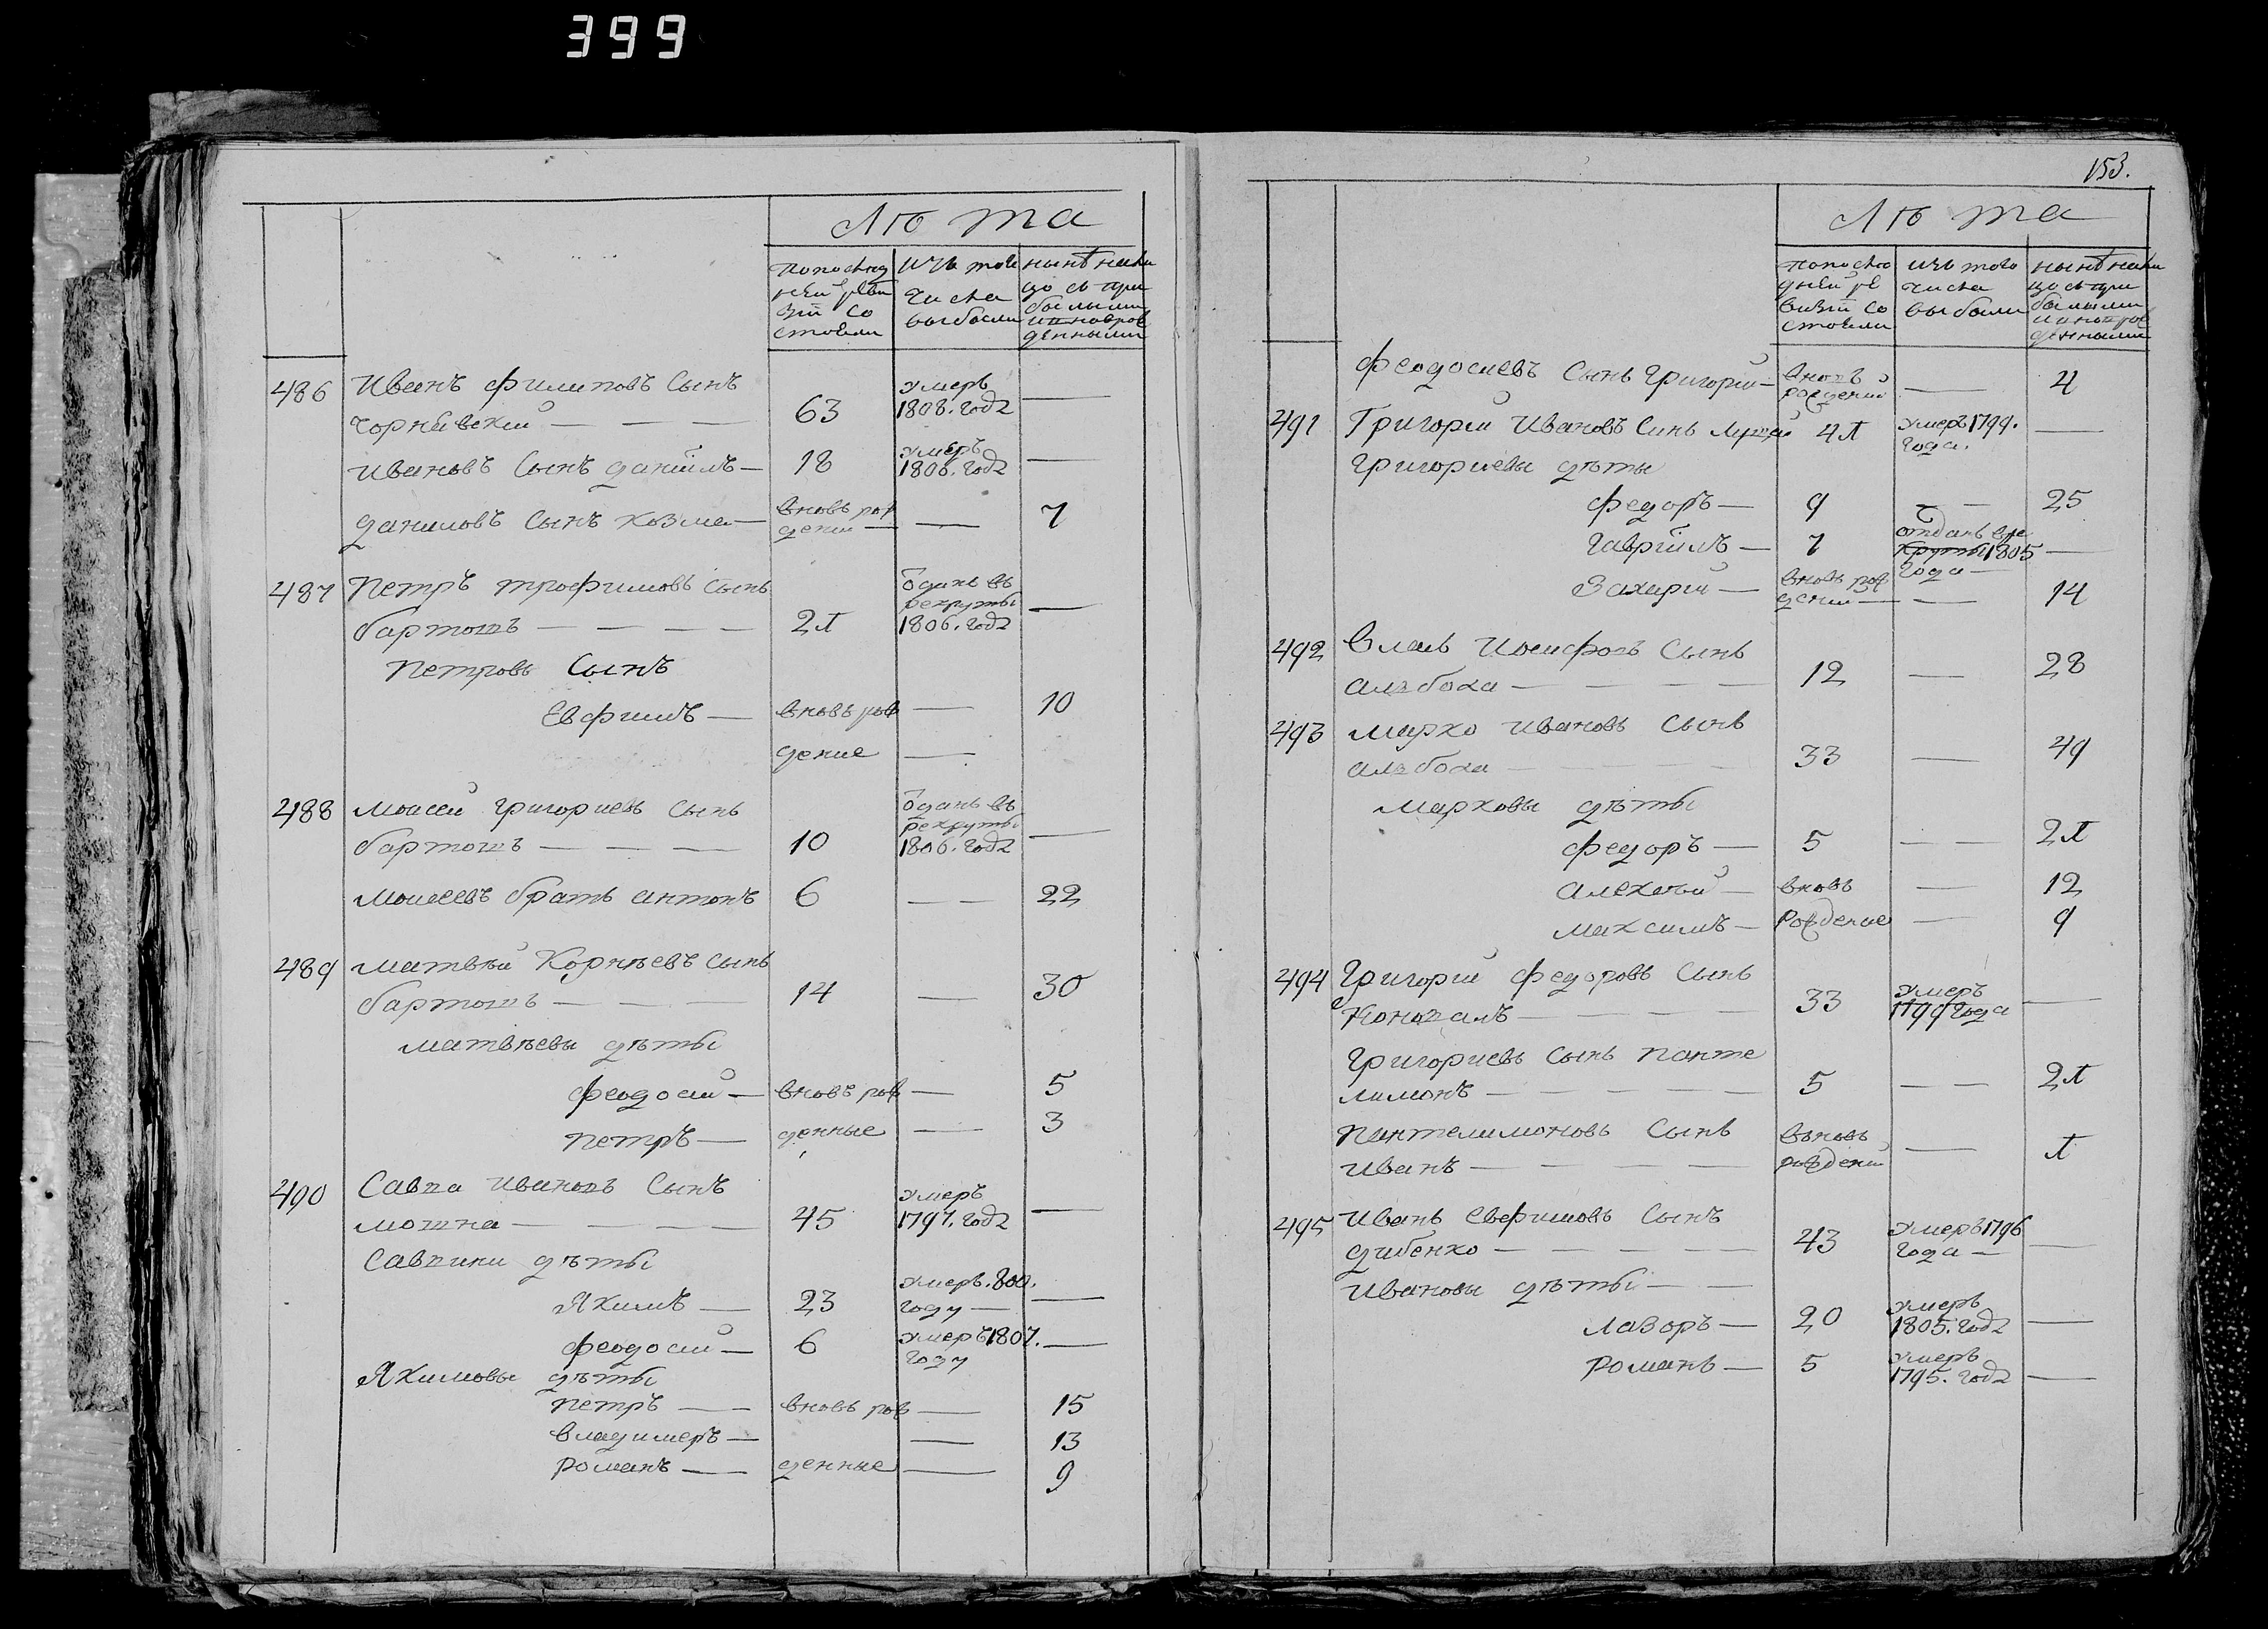 399
Лѣта
по послед
ней реви
зіи со
стояли
изъ того
числа
выбыли
нынѣ на ли
цо съ при
былыми
и новорож
денными
486 Иванъ филиповъ Сынъ
чорнѣвскій — — — 63 умеръ 1808. году —
ивановъ Сынъ даніилъ — 18 умеръ 1806. году —
даниловъ Сынъ козма — вновь рож
денный — — 7
487 Петръ трофимовъ Сынъ
бартошъ — — — — 24 ѿданъ въ рекруты 1806. году —
петровъ Сынъ
Евфимъ — вновь рож — 10
дение —
488 моисей григориевъ Сынъ
бартошъ — — — 10 ѿданъ въ рекруты 1806. году —
моисеевъ братъ антонъ 6 — — 22
489 матвѣй Корнѣевъ Сынъ
бартошъ — — — 14 — 30
матвѣевы дѣты
феодосий — вновь рож — 5
петръ — денные — 3
490 Савка ивановъ Сынъ
мошна — — — — 45 умеръ 1797. году —
Савкини дѣты
Якимъ — 23 умеръ. 800. году — —
феодосий — 6 умеръ 1807. году —
Якимовы дѣты
петръ — — вновь рож — 15
владимеръ — — 13
романъ — денные — 9
153.
Лѣта
по послѣ
дней ре
визіи со
стояли
изъ того
числа
выбыли
нынѣ на ли
цо съ при
былыми
и новорож
денными
феодосиевъ Сынъ григорий — вновь рожденый — 4
491 Григорий Ивановъ Синъ 44 умеръ 1799. года. —
григориевы дѣты
федоръ — 9 — — 25
гавріилъ — 7 отданъ в ре
круты 1805 года — —
Захарий — вновь рож
дений — — 14
492 Власъ Иосифовъ Сынъ
алабоха — — — — 12 — 28
493 марко ивановъ Сынъ
алабоха — — — — 33 — 49
марковы дѣты
федоръ — 5 — — 24
алексѣй — вновь — 12
максимъ — рождение — 9
494 Григорий федоровъ Сынъ
Коновалъ — — — — 33 умеръ 1799 года —
григориевъ Сынъ панте
лимонъ — — — — 5 — — 24
пантелимоновъ Сынъ
иванъ — — — — вновь рождений — 4
495 иванъ Евфимовъ Сынъ
дибенко — — — — — 43 умеръ 1796 года — —
ивановы дѣты — —
лазоръ — 20 умеръ 1805. году —
романъ — 5 умеръ 1795. году —